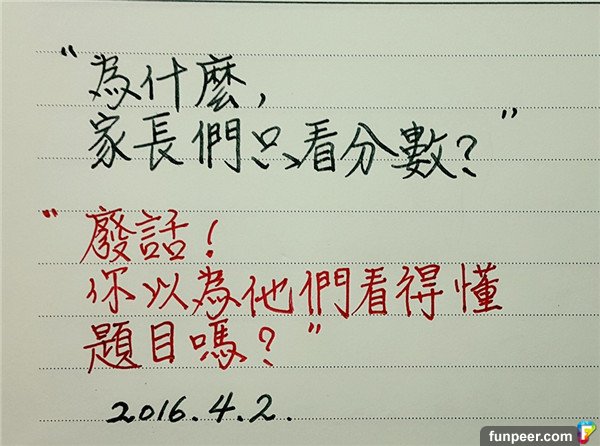 “為什麼,
家長們只看分數?”
“廢話!
你以為他們看得懂
題目嗎?”
2016.4.2.
funpeer.com